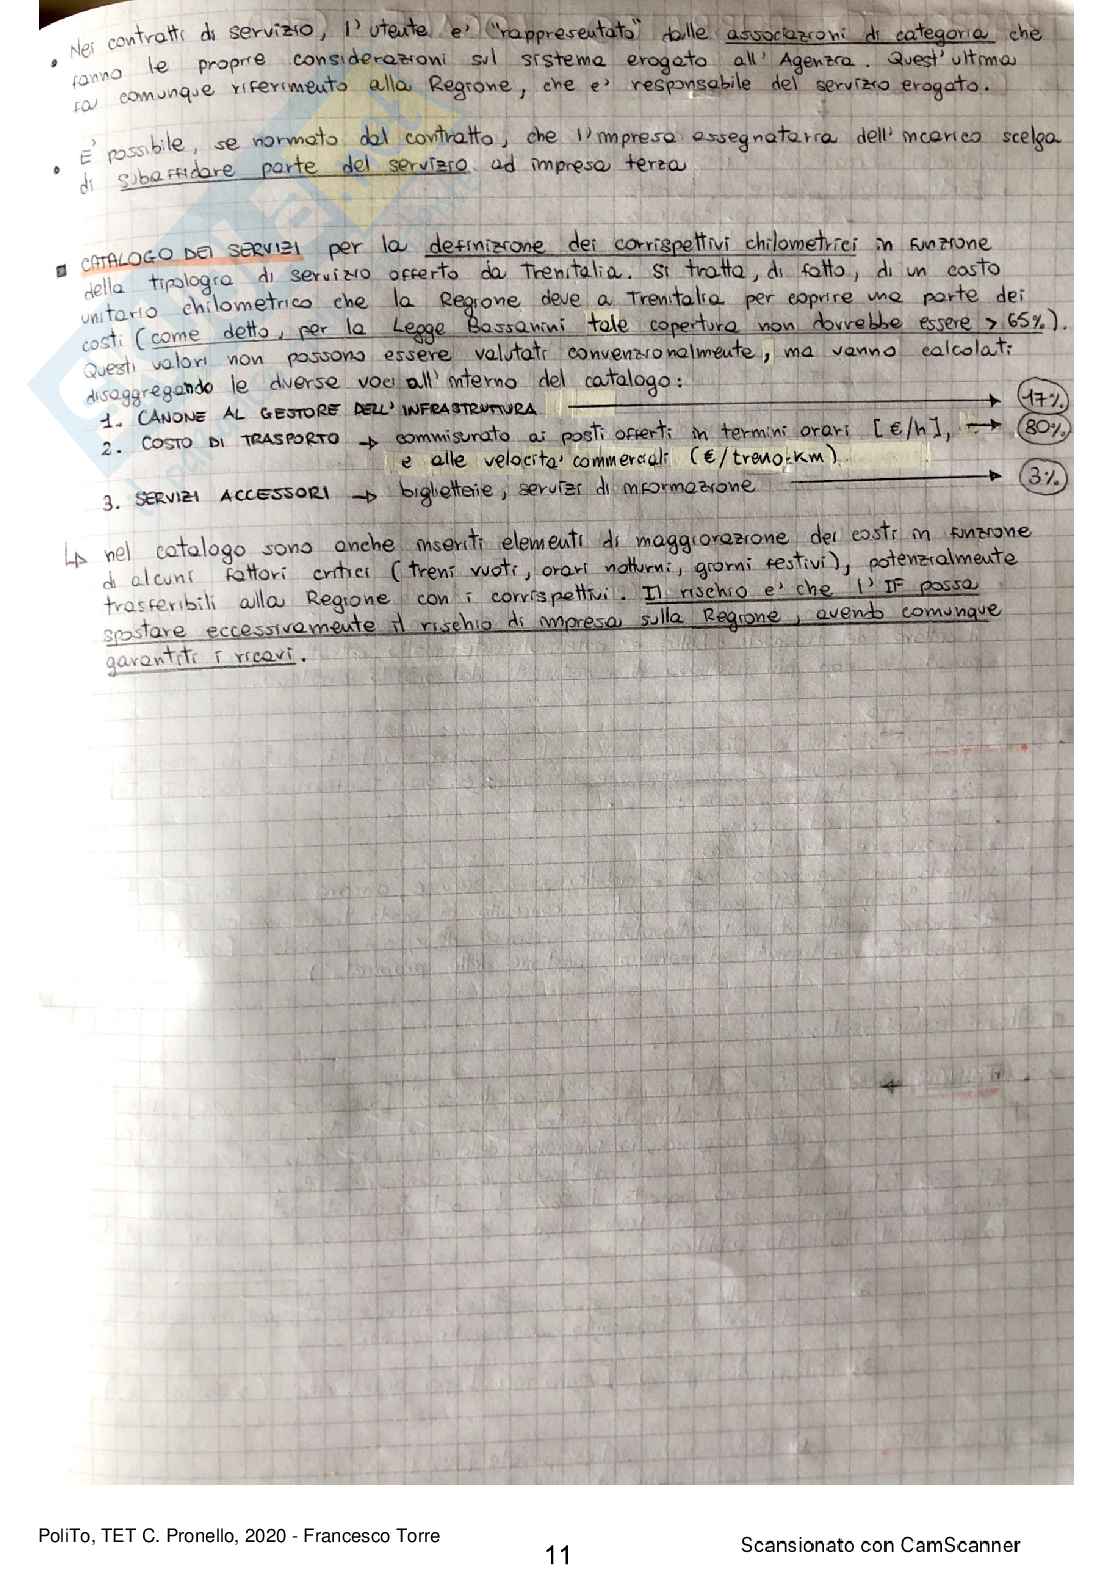 • Nei contratti di servizio, l'utente e' "rappresentato" dalle associazioni di categoria che
fanno le proprie considerazioni sul sistema erogato all'Agenzia. Quest'ultima
fa comunque riferimento alla Regione, che e' responsabile del servizio erogato.
• E' possibile, se normato dal contratto, che l'impresa assegnataria dell'incarico scelga
di subaffidare parte del servizio ad impresa terza
▪ CATALOGO DEI SERVIZI per la definizione dei corrispettivi chilometrici in funzione
della tipologia di servizio offerto da Trenitalia. Si tratta, di fatto, di un costo
unitario chilometrico che la Regione deve a Trenitalia per coprire una parte dei
costi (come detto, per la Legge Bassanini tale copertura non dovrebbe essere > 65%).
Questi valori non possono essere valutati convenzionalmente, ma vanno calcolati
disaggregando le diverse voci all'interno del catalogo:
1. CANONE AL GESTORE DELL'INFRASTRUTTURA → 17%
2. COSTO DI TRASPORTO → commisurato ai posti offerti in termini orari [€/h], → 80%
e alle velocita' commerciali (€/treno·km).
3. SERVIZI ACCESSORI → biglietterie, servizi di informazione → 3%
↳ nel catalogo sono anche inseriti elementi di maggiorazione dei costi in funzione
di alcuni fattori critici (treni vuoti, orari notturni, giorni festivi), potenzialmente
trasferibili alla Regione con i corrispettivi. Il rischio e' che l'IF possa
spostare eccessivamente il rischio di impresa sulla Regione, avendo comunque
garantiti i ricavi.
PoliTo, TET C. Pronello, 2020 - Francesco Torre
11
Scansionato con CamScanner